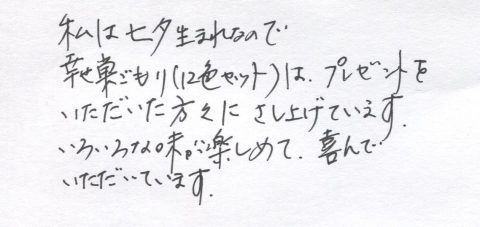 私は七夕生まれなので
幸せ巣ごもり(12色セット)は、プレゼントを
いただいた方々に さし上げています.
いろいろな味が楽しめて、喜んで
いただいています.